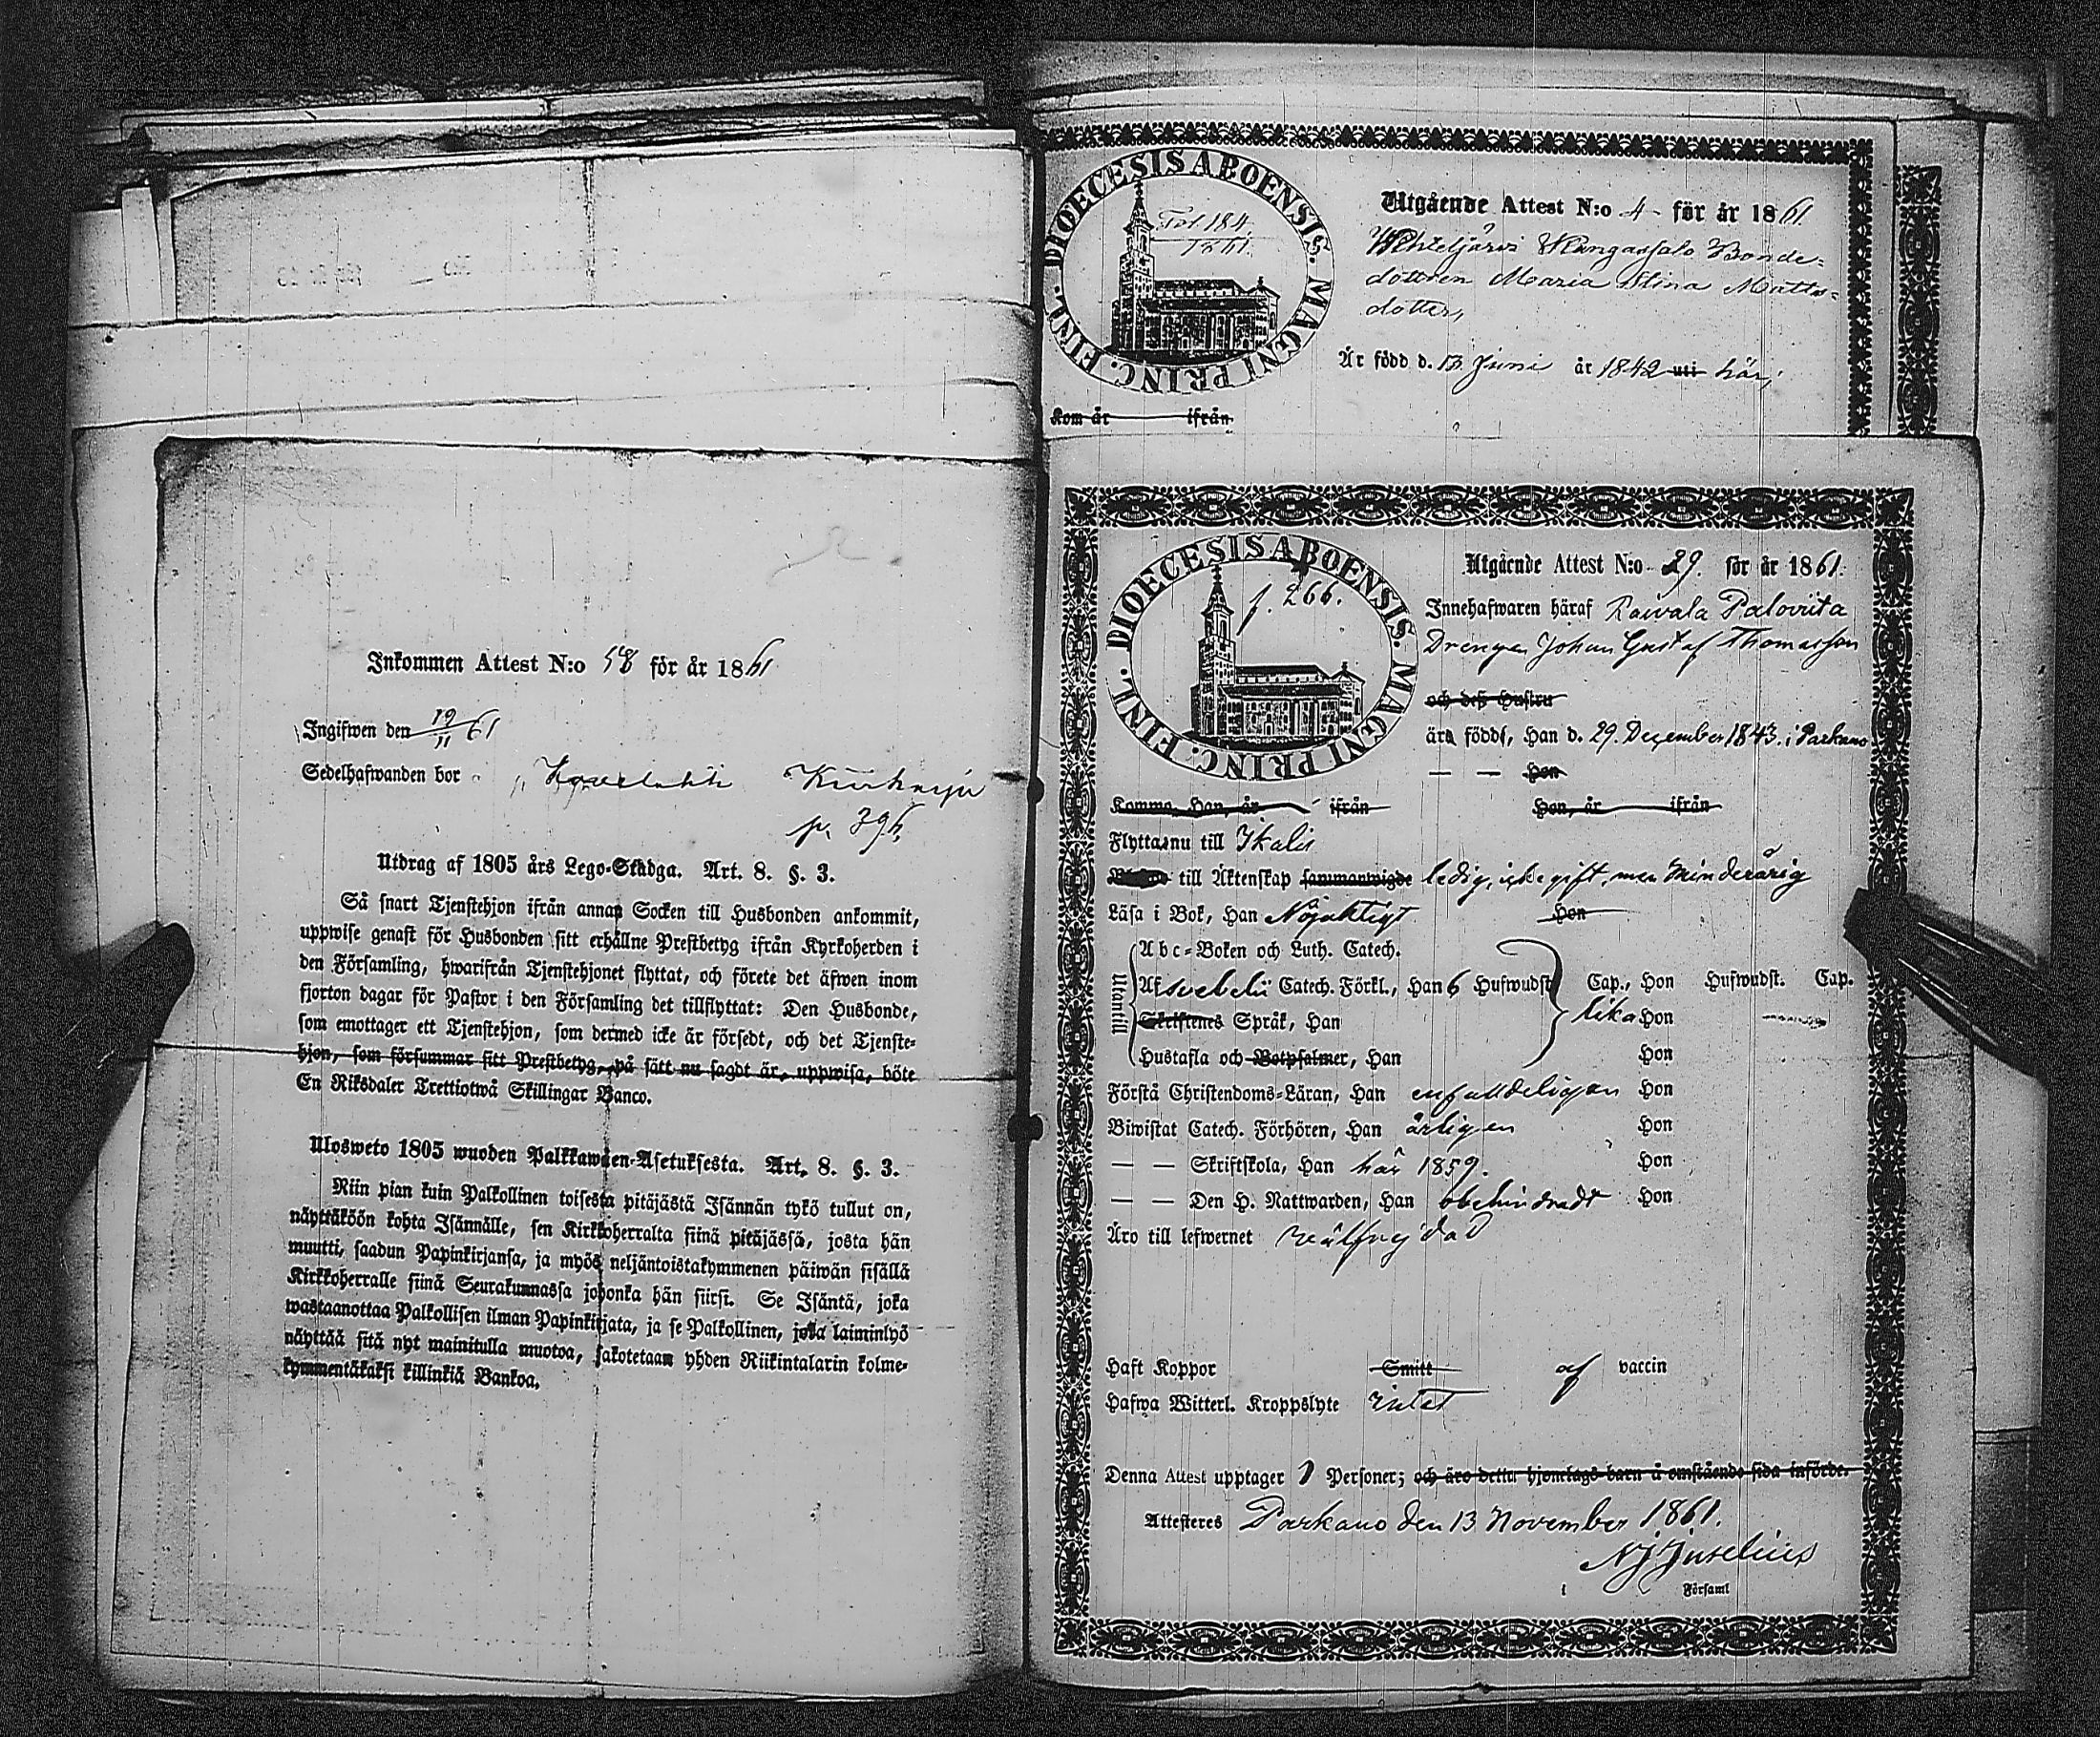 Inkommen Attest N:o 58 för år 1861
Ingifwen den 19/11 61
Sedelhafwanden bor
p. 396.
Utdrag af 1805 års Lego-Stadga. Art. 8. §. 3.
Så snart Tjenstehjon ifrån annan Socken till Husbonden ankommit,
uppwise genast för Husbonden sitt erhållne Prestbetyg ifrån Kyrkoherden i
den Församling, hwarifrån Tjenstehjonet flyttat, och förete det äfwen inom
fjorton dagar för Pastor i den Församling det tillflyttat: Den Husbonde,
som emottager ett Tjenstehjon, som dermed icke är försedt, och det Tjenste-
hjon, som försummar sitt Prestbetyg, på sätt nu sagdt är, uppwisa, böte
En Riksdaler Trettiotwå Skillingar Banco.
Ulosweto 1805 wuoden Palkkawäen-Asetuksesta. Art. 8. §. 3.
Niin pian kuin Palkollinen toisesta pitäjästä Isännän tykö tullut on,
näyttäköön kohta Isännälle, sen Kirkkoherralta siinä pitäjässä, josta hän
muutti, saadun Papinkirjansa, ja myös neljäntoistakymmenen päiwän sisällä
Kirkkoherralle siinä Seurakunnassa johonka hän siirsi. Se Isäntä, joka
wastaanottaa Palkollisen ilman Papinkirjata, ja se Palkollinen, joka laiminlyö
näyttää sitä nyt mainitulla muotoa, sakotetaan yhden Riikintalarin kolme-
kymmentäkaksi killinkiä Bankoa.
DIOECESIS ABOENSIS. MAGNI PRINC. FINL.
Fol 184.
1861.
Utgående Attest N:o 4 för år 1861
Wehteljärvi Kangassalo Bonde-
dottren Maria Stina Matts-
dotter,
Är född d. 13 Juni år 1842 uti här;
Kom år ifrån
DIOECESIS ABOENSIS. MAGNI PRINC. FINL.
f. 266.
Utgående Attest N:o 29. för år 1861.
Innehafwaren häraf Raivala Palovuta
Drengen Johan Gustaf Thomasson
och deß Hustru
ära födde, Han d. 29. Dezember 1843. i Parkano
— — Hon
Komma, Han, år ifrån Hon, år ifrån
Flytta nu till Ikalis
till Äktenskap sammanwigde ledig, icke gift, men minderårig
Läsa i Bok, Han Nöjaktigt Hon
Utantill
Abc-Boken och Luth. Catech.
Afsvebelii Catech. Förkl., Han 6 Hufwudst. Cap., Hon Hufwudst. Cap.
Skriftenes Språk, Han lika Hon
Hustafla och Botpsalmer, Han Hon
Förstå Christendoms-Läran, Han enfalldeligen Hon
Biwistat Catech. Förhören, Han årligen Hon
— — Skriftskola, Han här 1859. Hon
— — Den H. Nattwarden, Han obehindradt Hon
Äro till lefwernet wälfrejdad
Haft Koppor Smitt af vaccin
Hafwa Witterl. Kroppslyte intet
Denna Attest upptager 1 Personer; och äro detta hjonelags barn å omstående sida införde.
Attesteres Parkano den 13 November 1861.
i Församl